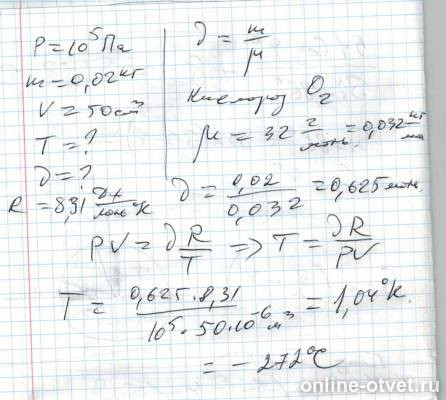 P = 10⁵ Па
m = 0,02 кг
V = 50 см³
T = ?
ν = ?
R = 8,31 Дж/моль°К
ν = m/μ
Кислород O₂
μ = 32 г/моль = 0,032 кг/мол
ν = 0,02/0,032 = 0,625 моль.
PV = νR/T => T = νR/PV
T = 0,625·8,31/10⁵·50·10⁻⁶ м³ = 1,04°К.
= -272°C
online-otvet.ru